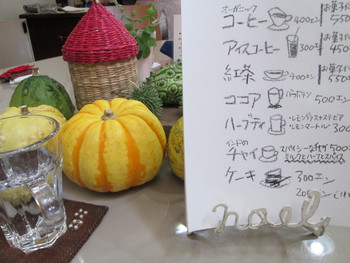 オーガニック お菓子付
コーヒー 400エン 550
お菓子付
アイスコーヒー 300エン 450
お菓子付
紅茶 400エン 550
ココア バンホーテン 500エン
ハーブティ ・レモングラス ・レモンマートル 300
インドの
チャイ スパイシーな 500
ケーキ 300エン
200エン
noel